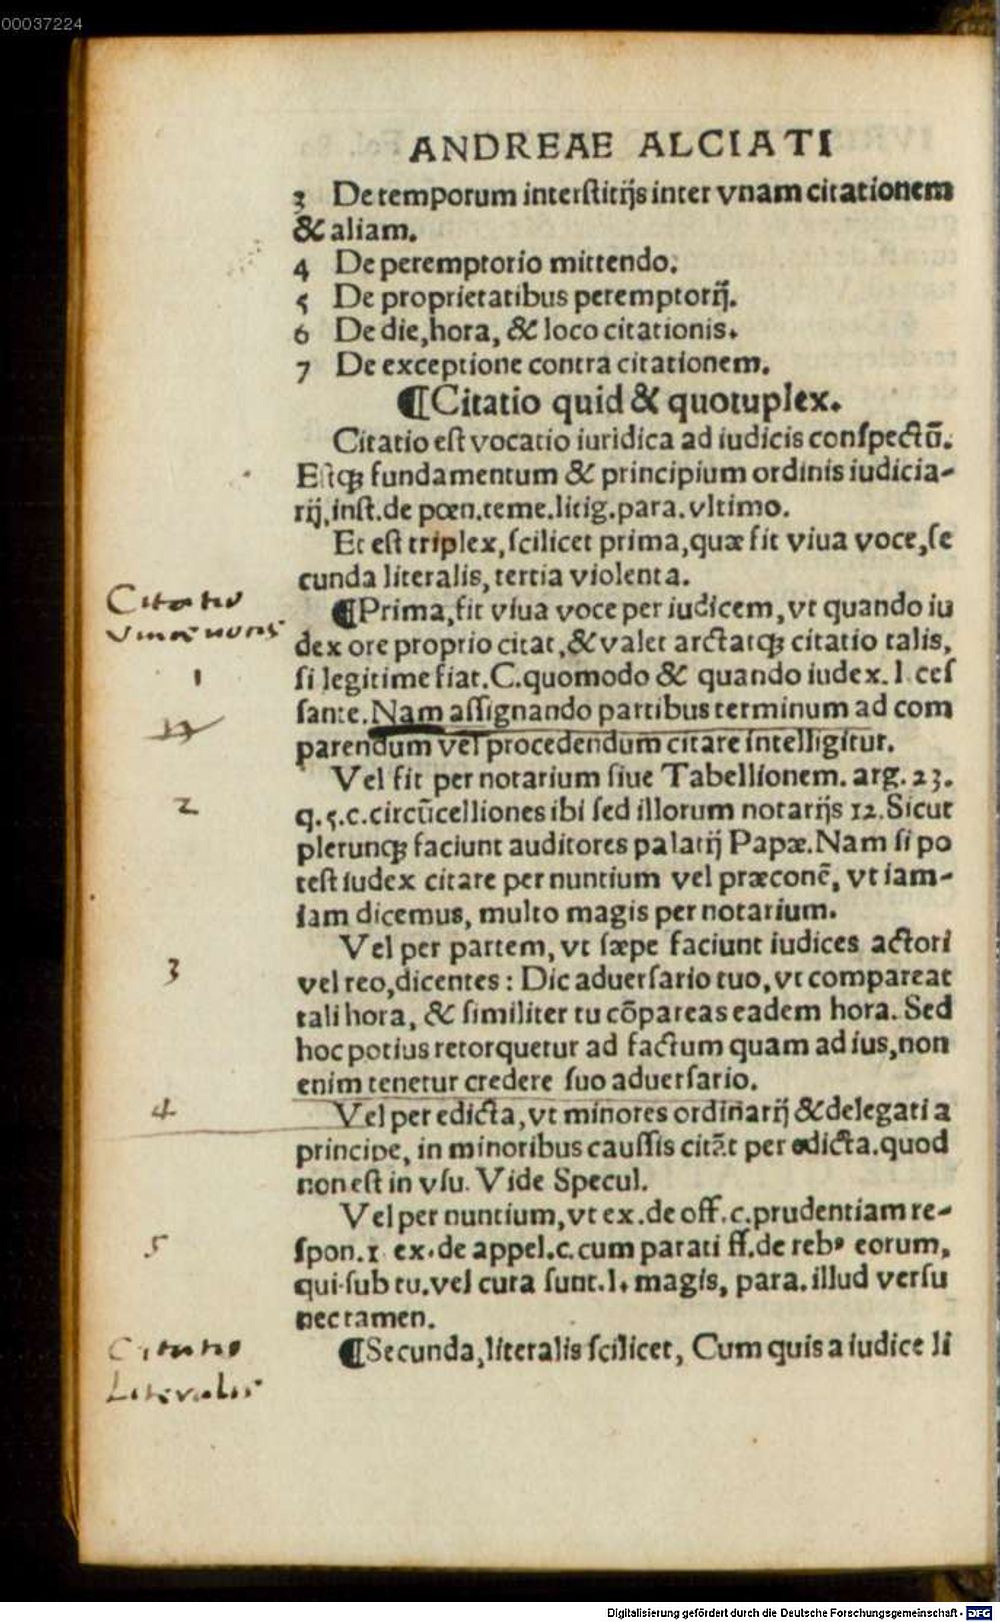 00037224
ANDREAE ALCIATI
3 De temporum interſtitijs inter vnam citationem
& aliam.
4 De peremptorio mittendo.
5 De proprietatibus peremptorij.
6 De die, hora, & loco citationis.
7 De exceptione contra citationem.
¶Citatio quid & quotuplex.
Citatio eſt vocatio iuridica ad iudicis conſpectū.
Eſtqꝫ fundamentum & principium ordinis iudicia-
rij, inſt. de pœn. teme. litig. para. vltimo.
Et eſt triplex, ſcilicet prima, quæ fit viua voce, ſe
cunda literalis, tertia violenta.
Citatio
¶Prima, fit viua voce per iudicem, vt quando iu
dex ore proprio citat, & valet arctatqꝫ citatio talis,
1
ſi legitime fiat. C. quomodo & quando iudex. l. ceſ
ſante. Nam aſſignando partibus terminum ad com
parendum vel procedendum citare intelligitur.
Vel fit per notarium ſiue Tabellionem. arg. 23.
2
q. 5. c. circūcelliones ibi ſed illorum notarijs 12. Sicut
plerunqꝫ faciunt auditores palatij Papæ. Nam ſi po
teſt iudex citare per nuntium vel præconē, vt iam-
iam dicemus, multo magis per notarium.
Vel per partem, vt ſæpe faciunt iudices actori
3
vel reo, dicentes : Dic aduerſario tuo, vt compareat
tali hora, & ſimiliter tu cōpareas eadem hora. Sed
hoc potius retorquetur ad factum quam ad ius, non
enim tenetur credere ſuo aduerſario.
4
Vel per edicta, vt minores ordinarij & delegati a
principe, in minoribus cauſſis citāt per edicta. quod
non eſt in vſu. Vide Specul.
Vel per nuntium, vt ex. de off. c. prudentiam re-
5
ſpon. 1 ex. de appel. c. cum parati ff. de rebꝰ eorum,
qui ſub tu. vel cura ſunt. l. magis, para. illud verſu
nec tamen.
Citatio
Literalis
¶Secunda, literalis ſcilicet, Cum quis a iudice li
Digitalisierung gefördert durch die Deutsche Forschungsgemeinschaft - DFG